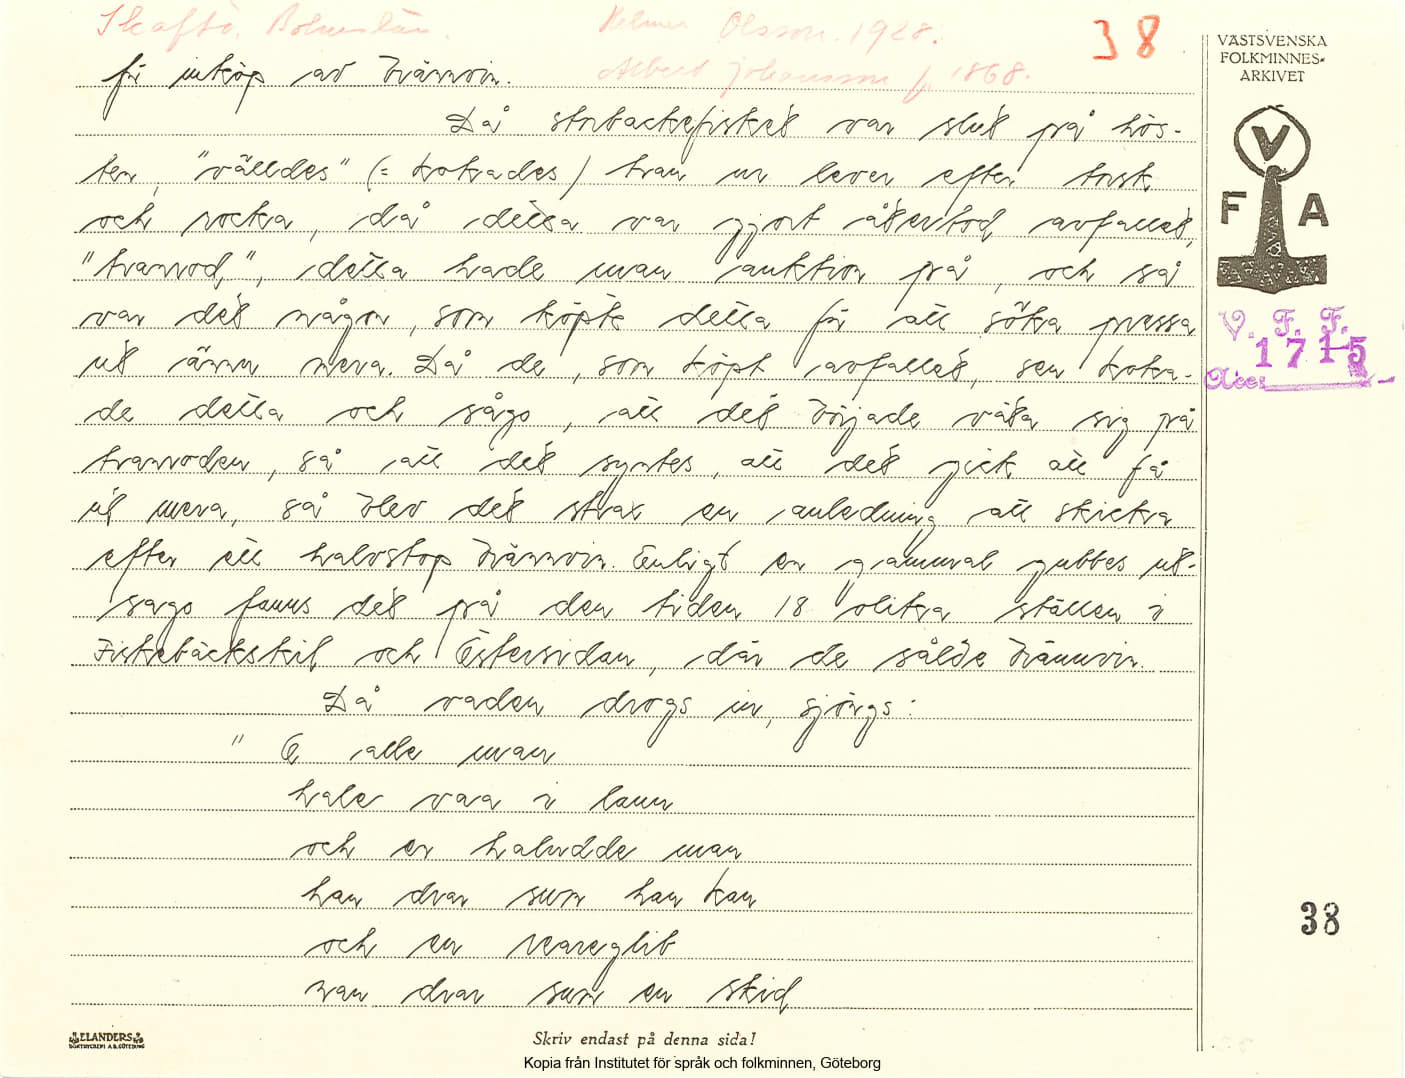 Skaftö, Bohuslän. Helmer Olsson. 1928. 38
Albert Johansson f. 1868.
VÄSTSVENSKA
FOLKMINNES-
ARKIVET
V
F A
V. F. F.
1715
Acc:
för inköp av brännvin.
Då storbackefisket var slut på hös-
ten, "välldes" (= kokades) tran ur lever efter torsk
och rocka, då detta var gjort återstod avfallet,
"tranrod", detta hade man auktion på, och så
var det någon, som köpte detta för att söka pressa
ut ännu mera. Då de, som köpt avfallet, sen koka-
de detta och sågo, att det började väta sig på
tranroden, så att det syntes, att det gick att få
ut mera, så blev det strax en anledning att skicka
efter ett halvstop brännvin. Enligt en gammal gubbes ut-
sago fanns det på den tiden 18 olika ställen i
Fiskebäckskil och Östersidan, där de sålde brännvin.
Då vaden drogs in, sjöngs:
" Å alle man
hale vaa i lann
och en haludde man
han drar sum han kan
och en reareglib
han drar sum en skid
38
ELANDERS
BOKTRYCKERI A.B. GÖTEBORG
Skriv endast på denna sida!
Kopia från Institutet för språk och folkminnen, Göteborg